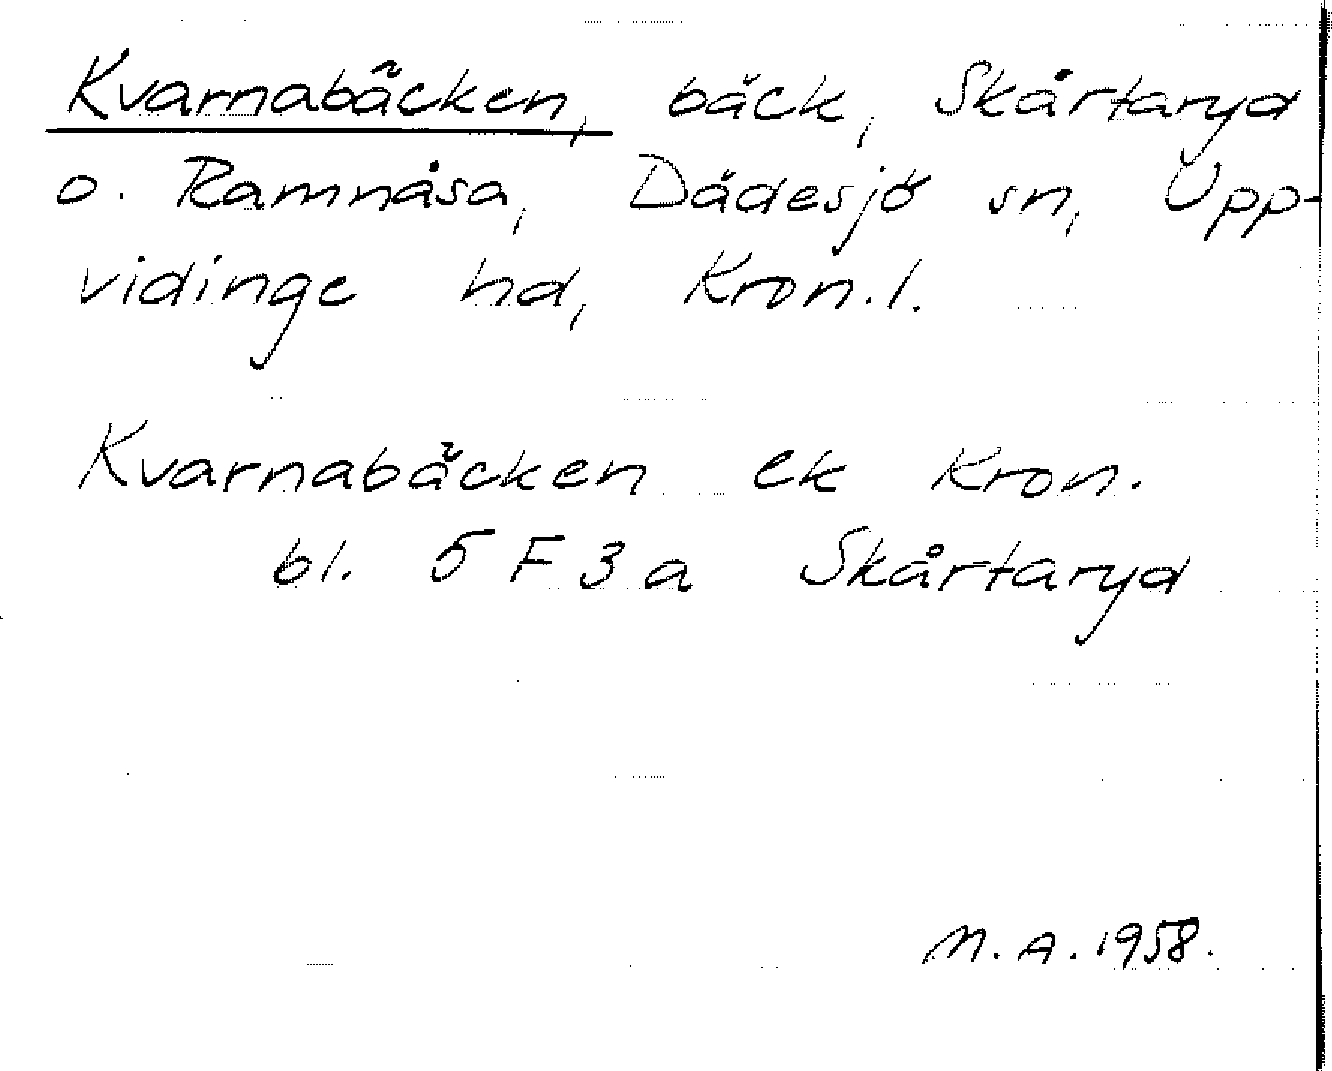 Kvarnabäcken, bäck, Skårtaryd
o. Ramnåsa, Dädesjö sn, Upp-
vidinge hd, Kron.l.
Kvarnabäcken ek Kron.
bl. 5 F 3 a Skårtaryd
M.A. 1958.